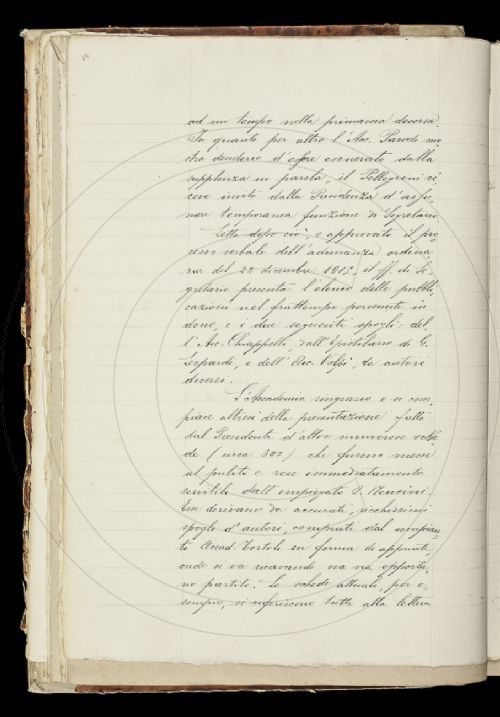 ad un tempo nella primavera decorsa.
In quanto per altro l'Acc. Parodi mo-
stra desiderio d'essere esonerato dalla
supplenza in parola, il Pellegrini ri-
ceve invito dalla Presidenza d'assu-
mere temporanea funzione di Segretario.
Letto dopo ciò, e approvato il pro-
cesso verbale dell'adunanza ordina-
ria del 22 dicembre 1915, il ff. di Se-
gretario presenta l'elenco delle pubbli-
cazioni nel frattempo pervenute in
dono, e i due seguenti spogli: del-
l'Acc. Chiappelli, dall'Epistolario di G.
Leopardi, e dell'Acc. Volpi, da autori
diversi.
L'Accademia ringrazia e si com-
piace altresì della presentazione fatta
dal Presidente d'altre numerose sche-
de (circa 300) che furono messe
al pulito e rese immediatamente
servibili dall'impiegato P. Mencini.
Esse derivano da accurati, ricchissimi
spogli d'autori, compiuti dal compian-
to Accad. Tortoli in forma di appunti,
onde si va ricavando via via opportu-
no partito: le schede attuali, per e-
sempio, si riferiscono tutte alla lettera